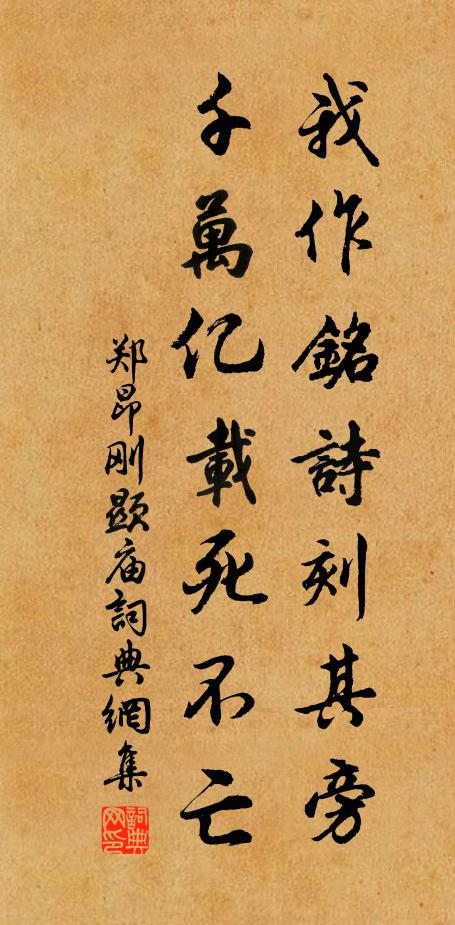 我作銘詩刻其旁
千萬亿載死不亡
郑昂刚显庙詞典網集
詞典网印